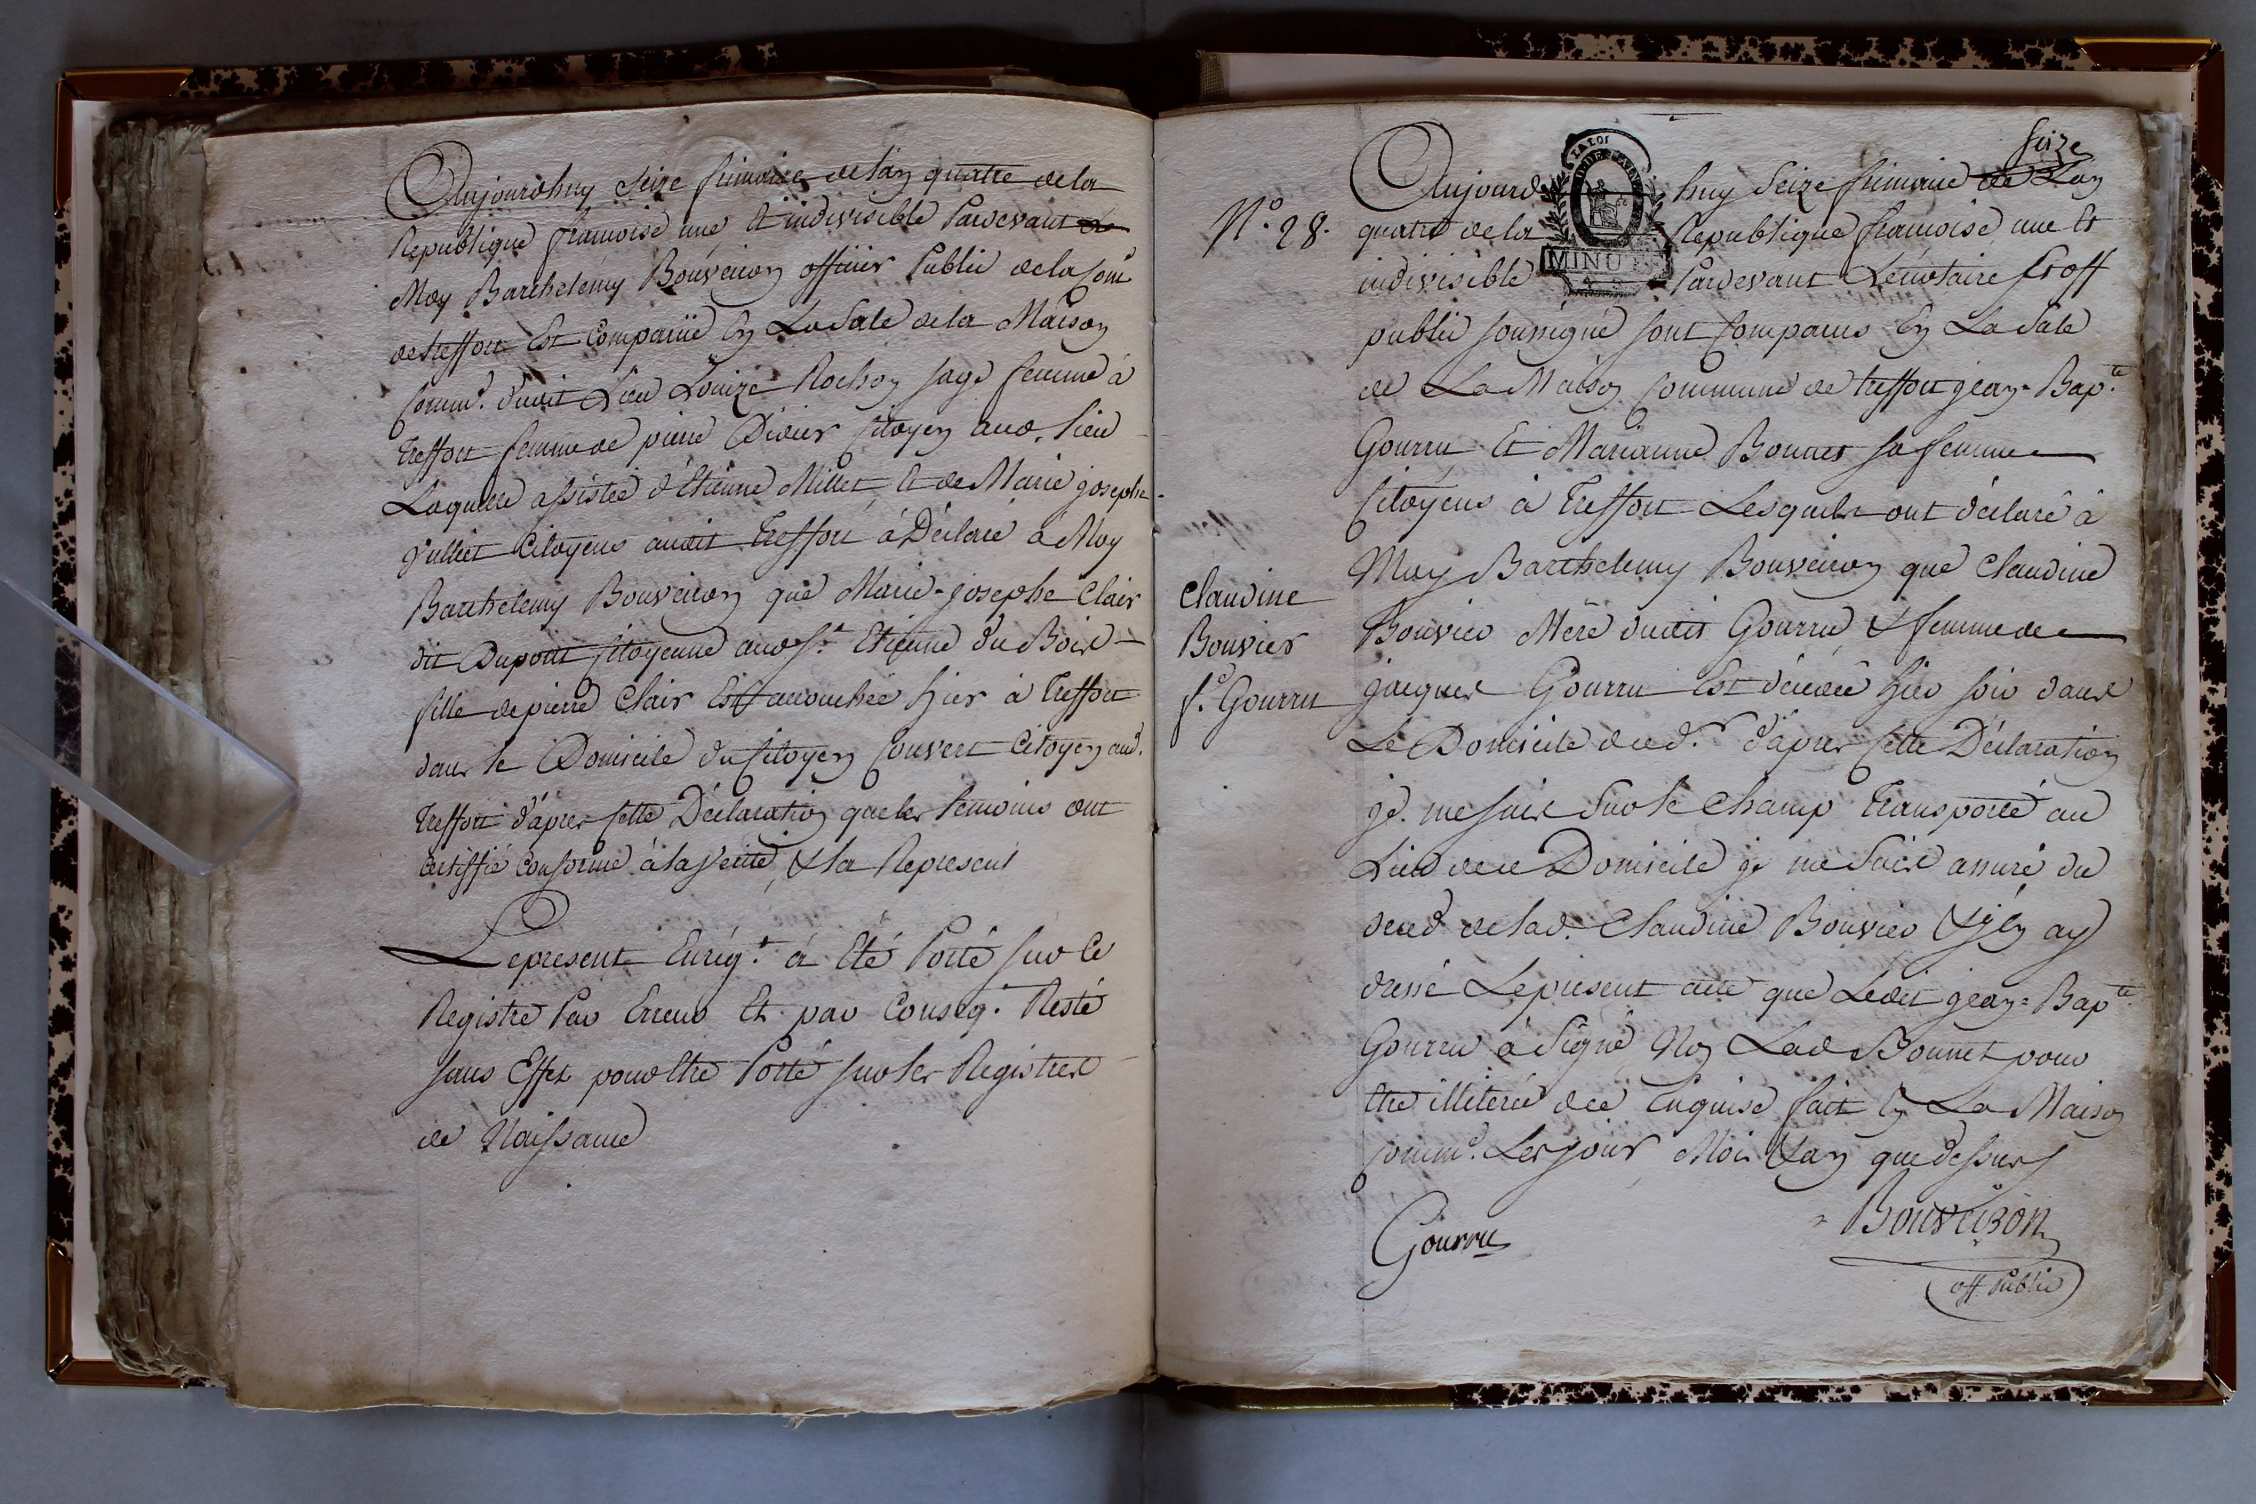 Aujourdhuy Seize frimaire de lan quatre de la
Republique francoise une et indivisible Pardevant
Moy Barthelemy Bouveiron officier Public de la Com
de treffort Est Comparüe En La Sale de la Maison
Comm.e dudit Lieu Louize Rochon sage femme à
treffort femme de pierre Didier Citoyen aud. lieu
Laquelle assistée d'Etienne Millet et de Marie josephe
Julliet Citoyens audit treffort à Déclaré à Moy
Barthelemy Bouveiron que Marie-josephe Clair
dit Dupont Citoyenne aud St. Etienne du Bois
fille de pierre Clair Est accouchée hier à Treffort
dans le Domicile du Citoyen Convert Citoyen aud.
Treffort d'apres Cette Déclaration que les temoins ont
certiffié conforme à la verité, & la Represent
Le present Enrég.t à Eté Porté sur le
Registre Par Erreur Et par Conseq.t Resté
sans Effet pour Etre Porté sur les Registres
de Naissance
Seize
N.o 28.
LA LOI
MINUTE
Aujourd huy Seize frimaire de Lan
quatre de la Republique francoise une Et
indivisible Pardevant Le notaire Et off
public soussigné sont Comparus En La Sale
de La Maison Commune de treffort jean-Bap.te
Gourru Et Marianne Bonnet sa femme
Citoyens à Treffort Lesquels ont déclaré à
Moy Barthelemy Bouveiron que Claudine
Bouvier Mere dudit Gourru & femme de
jacques Gourru Est décédée hier soir dans
Le Domicile de ced.r d'apres Cette Déclaration
je me suis Sur le Champ Transporté au
Lieu de ce Domicile je me Suis assuré du
deced de lad. Claudine Bouvier & j'en ay
dressé Le present acte que Ledit jean-Bap.te
Gourru à Signé Non Lad Bonnet pour
Etre illiterée de ce Enquise fait En La Maison
Comm.e Les jour Mois & an que dessus
Claudine
Bouvier
f.e Gourru
Gourru
Bouveiron
off. Public